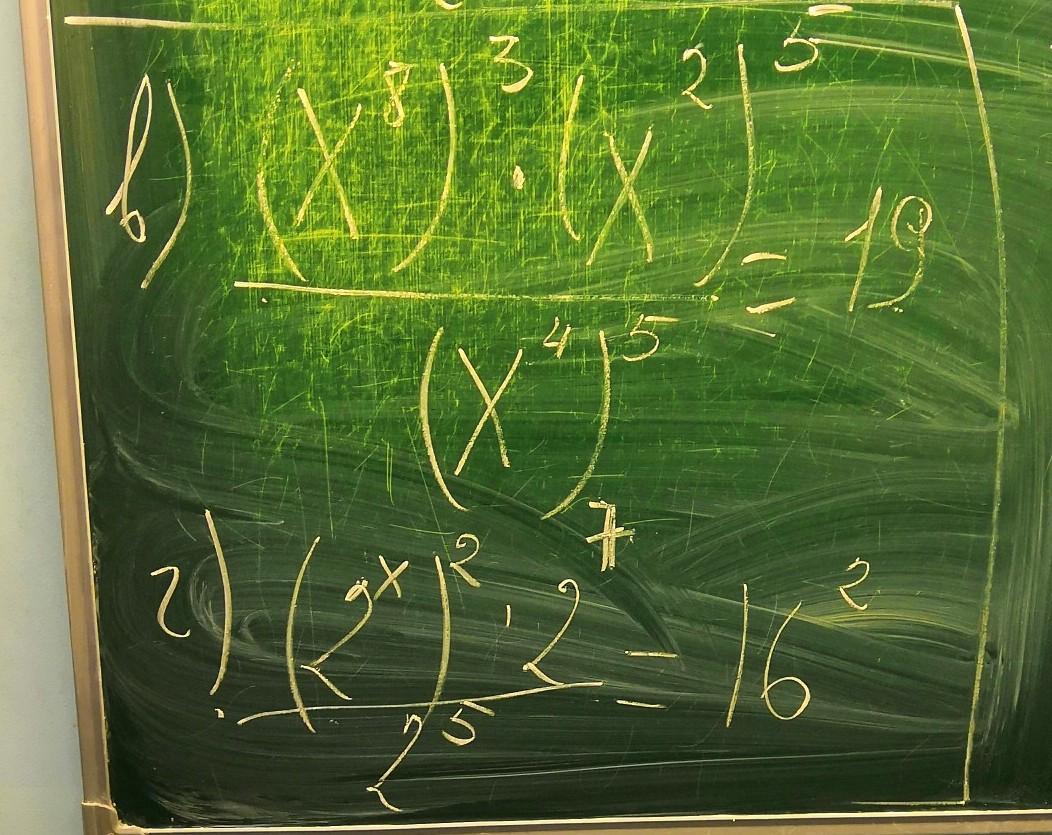 в) ((x^8)^3 · (x^2)^5) / (x^4)^5 = 19
г) ((2^x)^2 · 2^7) / 2^5 = 16^2